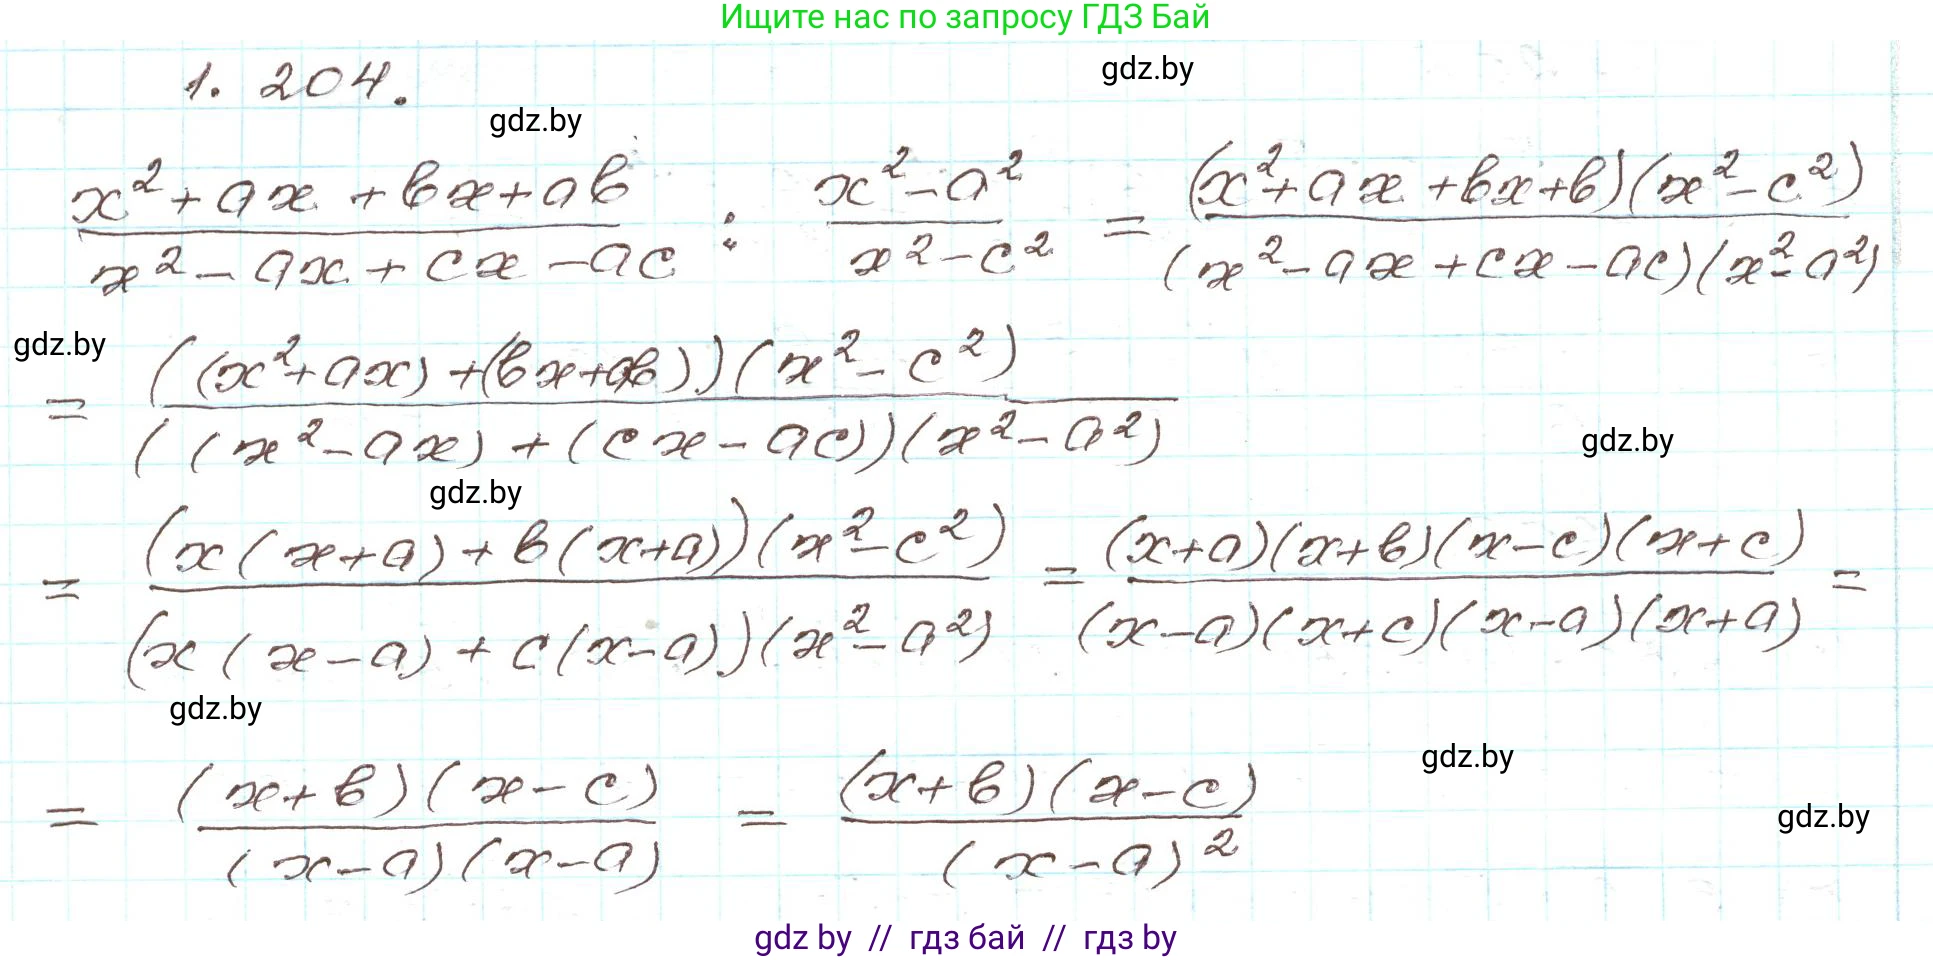 Ищите нас по запросу ГДЗ Бай
gdz.by
1. 204.
gdz.by
(x²+ax+bx+ab)/(x²-ax+cx-ac) : (x²-a²)/(x²-c²) = ((x²+ax+bx+b)(x²-c²))/((x²-ax+cx-ac)(x²-a²))
gdz.by
= (((x²+ax)+(bx+ab))(x²-c²))/(((x²-ax)+(cx-ac))(x²-a²))
gdz.by
gdz.by
= ((x(x+a)+b(x+a))(x²-c²))/((x(x-a)+c(x-a))(x²-a²)) = ((x+a)(x+b)(x-c)(x+c))/((x-a)(x+c)(x-a)(x+a)) =
gdz.by
gdz.by
= ((x+b)(x-c))/((x-a)(x-a)) = ((x+b)(x-c))/((x-a)²)
gdz.by
gdz by // гдз бай // гдз by